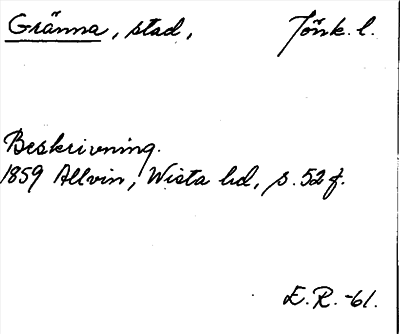 Gränna, stad, Jönk. l.
Beskrivning.
1859 Allvin, Wista hd, s. 52 f.
E. R. -61.